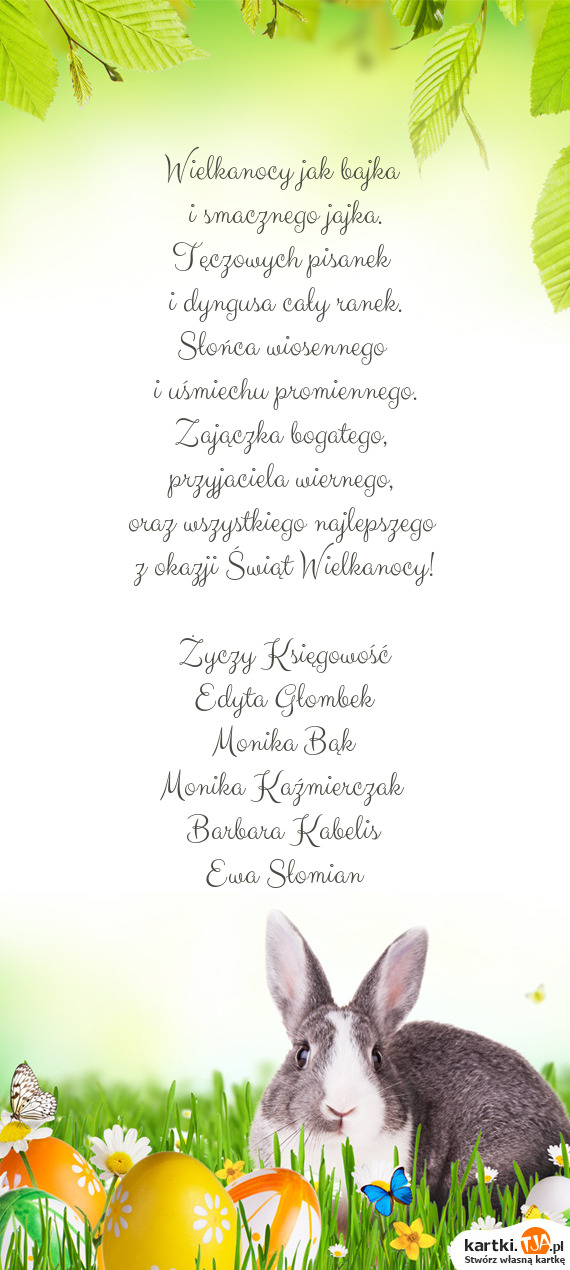 Wielkanocy jak bajka
i smacznego jajka.
Tęczowych pisanek
i dyngusa cały ranek.
Słońca wiosennego
i uśmiechu promiennego.
Zajączka bogatego,
przyjaciela wiernego,
oraz wszystkiego najlepszego
z okazji Świąt Wielkanocy!
Życzy Księgowość
Edyta Głombek
Monika Bąk
Monika Kaźmierczak
Barbara Kabelis
Ewa Słomian
kartki.TJA.pl
Stwórz własną kartkę